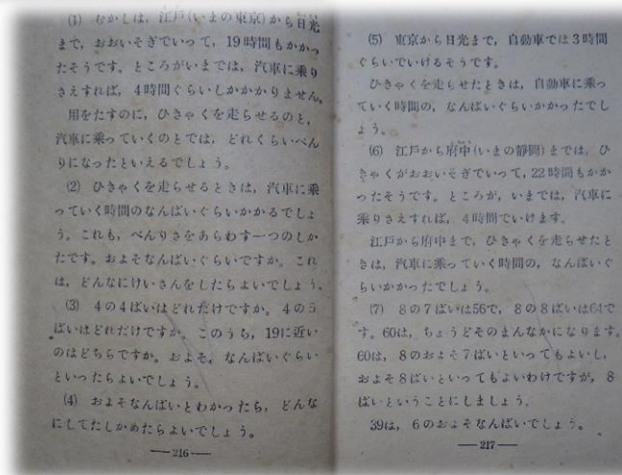 (1) むかしは，江戸(いまの東京)から日光
まで，おおいそぎでいって，19時間もかかっ
たそうです。ところがいまでは，汽車に乗り
さえすれば，4時間ぐらいしかかかりません。
用をたすのに，ひきゃくを走らせるのと，
汽車に乗っていくのとでは，どれくらいべん
りになったといえるでしょう。
(2) ひきゃくを走らせるときは，汽車に乗
っていく時間のなんばいぐらいかかるでしょ
う。これも，べんりさをあらわす一つのしか
たです。およそなんばいぐらいですか。これ
は，どんなにけいさんをしたらよいでしょう。
(3) 4の4ばいはどれだけですか。4の5
ばいはどれだけですか。このうち，19に近い
のはどちらですか。およそ，なんばいぐらい
といったらよいでしょう。
(4) およそなんばいとわかったら，どんな
にしてたしかめたらよいでしょう。
—216—
(5) 東京から日光まで，自動車では3時間
ぐらいでいけるそうです。
ひきゃくを走らせたときは，自動車に乗っ
ていく時間の，なんばいぐらいかかったでし
ょう。
(6) 江戸から府中(いまの静岡)までは，ひ
きゃくがおおいそぎでいって，22時間もかか
ったそうです。ところが，いまでは，汽車に
乗りさえすれば，4時間でいけます。
江戸から府中まで，ひきゃくを走らせたと
きは，汽車に乗っていく時間の，なんばいぐ
らいかかったでしょう。
(7) 8の7ばいは56で，8の8ばいは64で
す。60は，ちょうどそのまんなかになります。
60は，8のおよそ7ばいといってもよいし，
およそ8ばいといってもよいわけですが，8
ばいということにしましょう。
39は，6のおよそなんばいでしょう。
—217—